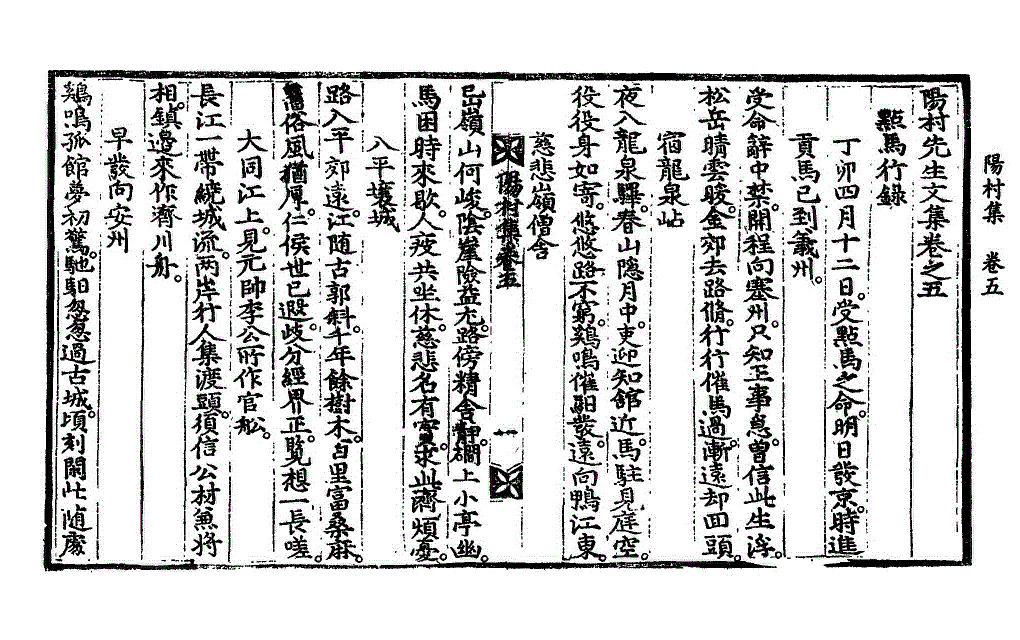 陽村集 卷五
陽村先生文集卷之五
點馬行錄
丁卯四月十二日。受點馬之命。明日發京。時進
貢馬已到義州。
受命辭中禁。開程向塞州。只知王事急。曾信此生浮。
松岳晴雲晙。金郊去路脩。行行催馬過。漸遠却回頭。
宿龍泉岾
夜入龍泉驛。春山隱月中。吏迎知舘近。馬駐見庭空。
役役身如寄。悠悠路不窮。鷄鳴催馹發。遠向鴨江東。
慈悲嶺僧舍
陽村集卷五
一
嵒嶺山何峻。陰崖險益尤。路傍精舍靜。欄上小亭幽。
馬困時來歇。人疲共坐休。慈悲名有實。求此濟煩憂。
入平壤城
路入平郊遠。江随古郭斜。千年餘樹木。百里富桑麻。
舊俗風猶厚。仁侯世已遐。歧分經界正。覽想一長嗟。
大同江上。見元帥李公所作官舩。
長江一帶繞城流。两岸行人集渡頭。須信公材兼將
相。鎮邊來作濟川舟。
早發向安州
鷄鳴孤館夢初驚。馳馹怱怱過古城。頃刻開此随處